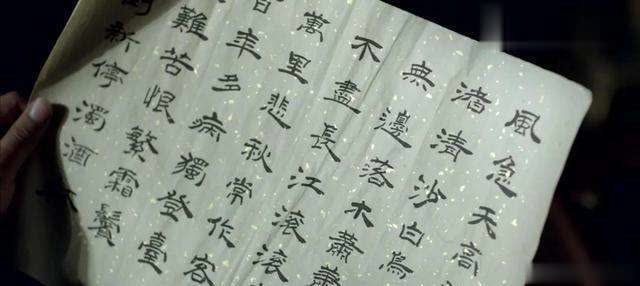 風急天高
渚清沙白鳥
無邊落木蕭蕭
不盡長江滾滾
萬里悲秋常作客
百年多病獨登臺
難苦恨繁霜鬢
新停濁酒